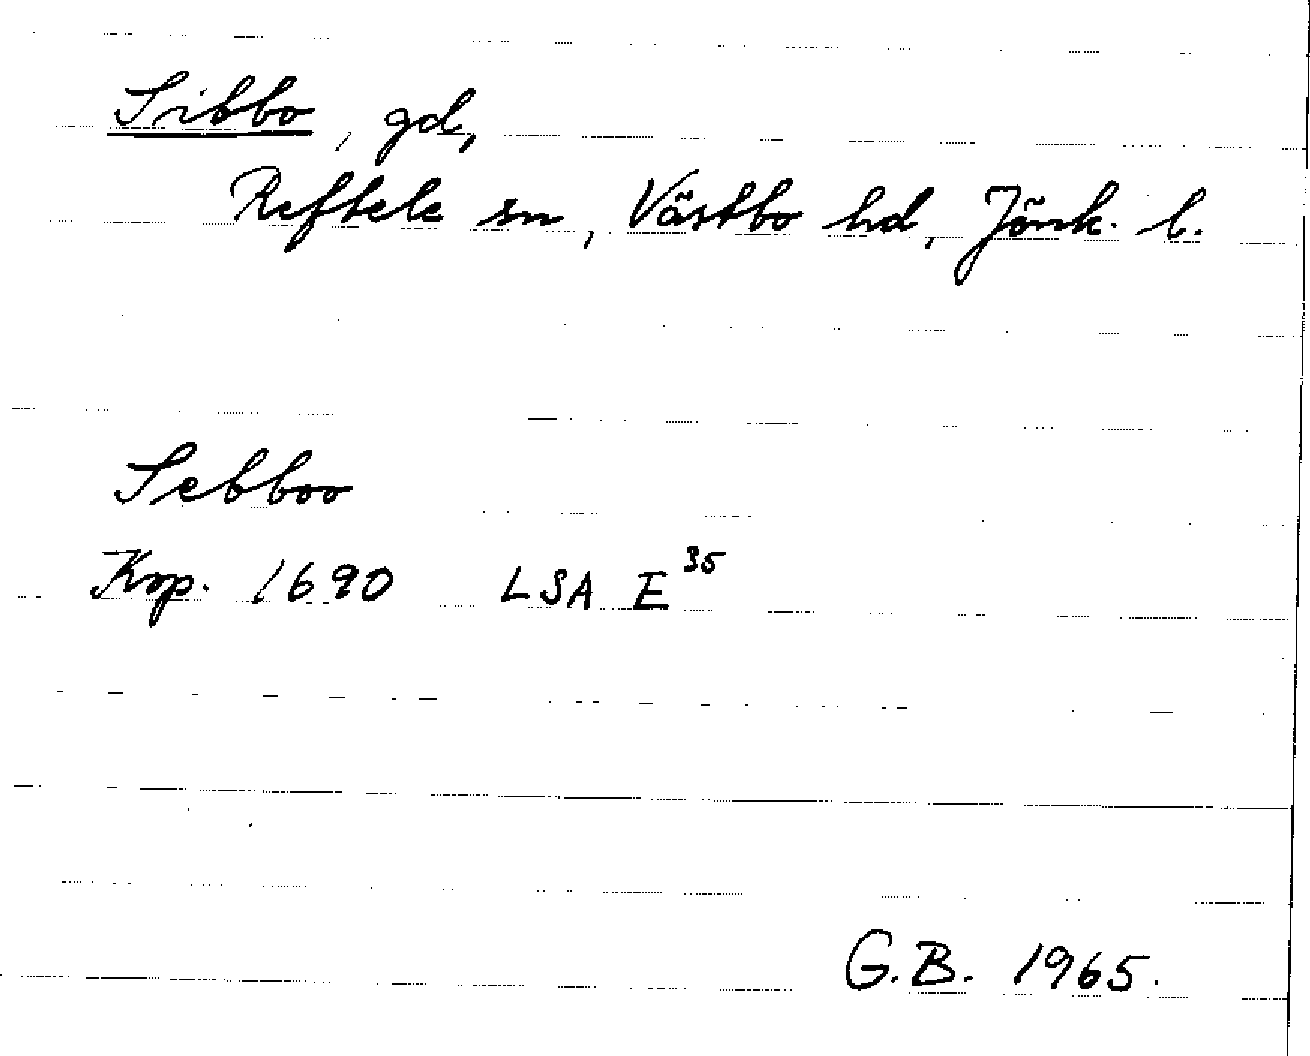 Sibbo, gd,
Reftele sn, Västbo hd, Jönk. l.
Sebboo
Kop. 1690 LSA E 35
G.B. 1965.